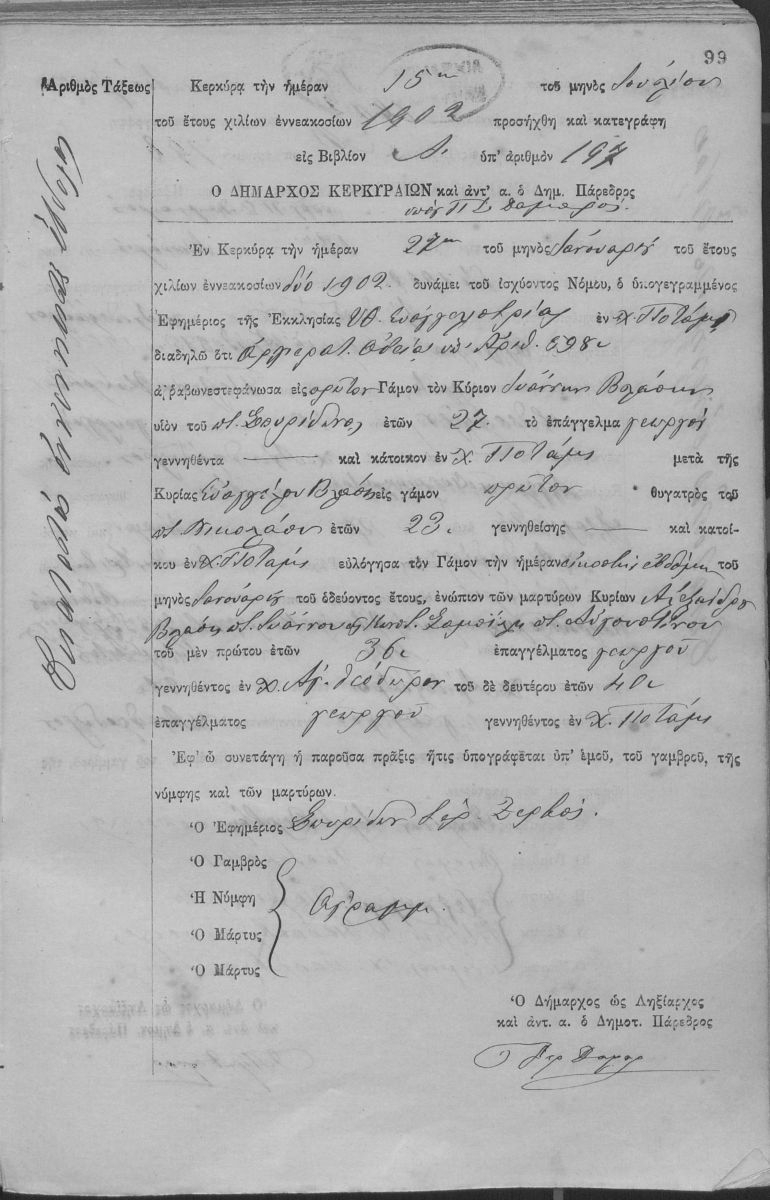 99
Ἀριθμὸς Τάξεως
Ἑκατοστὸς ἐννενηκοστὸς ἕβδομος
Κερκύρᾳ τὴν ἡμέραν 15ην τοῦ μηνὸς Ἰουλίου
τοῦ ἔτους χιλίων ἐννεακοσίων 1902 προσήχθη καὶ κατεγράφη
εἰς Βιβλίον Α. ὑπ' ἀριθμὸν 197
Ὁ ΔΗΜΑΡΧΟΣ ΚΕΡΚΥΡΑΙΩΝ καὶ ἀντ' α. ὁ Δημ. Πάρεδρος
Ἐν Κερκύρᾳ τὴν ἡμέραν 27ην τοῦ μηνὸς Ἰανουαρίου τοῦ ἔτους
χιλίων ἐννεακοσίων δύο 1902. δυνάμει τοῦ ἰσχύοντος Νόμου, ὁ ὑπογεγραμμένος
Ἐφημέριος τῆς Ἐκκλησίας Υ.Θ. Εὐαγγελιστρίας ἐν χ. Ποταμῷ
διαδηλῶ ὅτι Ἀρχιερατ. ἀδείᾳ ὑπ' Ἀριθ. 598
ἀῤῥαβωνεστεφάνωσα εἰς πρῶτον Γάμον τὸν Κύριον Ἰωάννην Βλάσην
υἱὸν τοῦ ποτ. Σπυρίδωνος ἐτῶν 27. τὸ ἐπάγγελμα γεωργὸν
γεννηθέντα — καὶ κάτοικον ἐν χ. Ποταμῷ μετὰ τῆς
Κυρίας Εὐαγγέλου Βλάση εἰς γάμον πρῶτον θυγατρὸς τοῦ
ποτ. Νικολάου ἐτῶν 23. γεννηθείσης — καὶ κατοί-
κου ἐν χ. Ποταμῷ εὐλόγησα τὸν Γάμον τὴν ἡμέραν εἰκοστὴν ἑβδόμην τοῦ
μηνὸς Ἰανουαρίου τοῦ ὁδεύοντος ἔτους, ἐνώπιον τῶν μαρτύρων Κυρίων Ἀλεξάνδρου
Βλάση ποτ. Ἰωάννου καὶ Κωνστ. ποτ. Αὐγουστίνου
τοῦ μὲν πρώτου ἐτῶν 36 ἐπαγγέλματος γεωργοῦ
γεννηθέντος ἐν χ. Ἁγ. Θεόδωρον τοῦ δὲ δευτέρου ἐτῶν 40
ἐπαγγέλματος γεωργοῦ γεννηθέντος ἐν χ. Ποταμῷ
Ἐφ' ᾧ συνετάγη ἡ παροῦσα πρᾶξις ἥτις ὑπογράφεται ὑπ' ἐμοῦ, τοῦ γαμβροῦ, τῆς
νύμφης καὶ τῶν μαρτύρων.
Ὁ Ἐφημέριος Σπυρίδων Ἱερ. Ζερβός.
Ὁ Γαμβρὸς
Ἡ Νύμφη
Ἀγράμμ.
Ὁ Μάρτυς
Ὁ Μάρτυς
Ὁ Δήμαρχος ὡς Ληξίαρχος
καὶ ἀντ. α. ὁ Δημοτ. Πάρεδρος